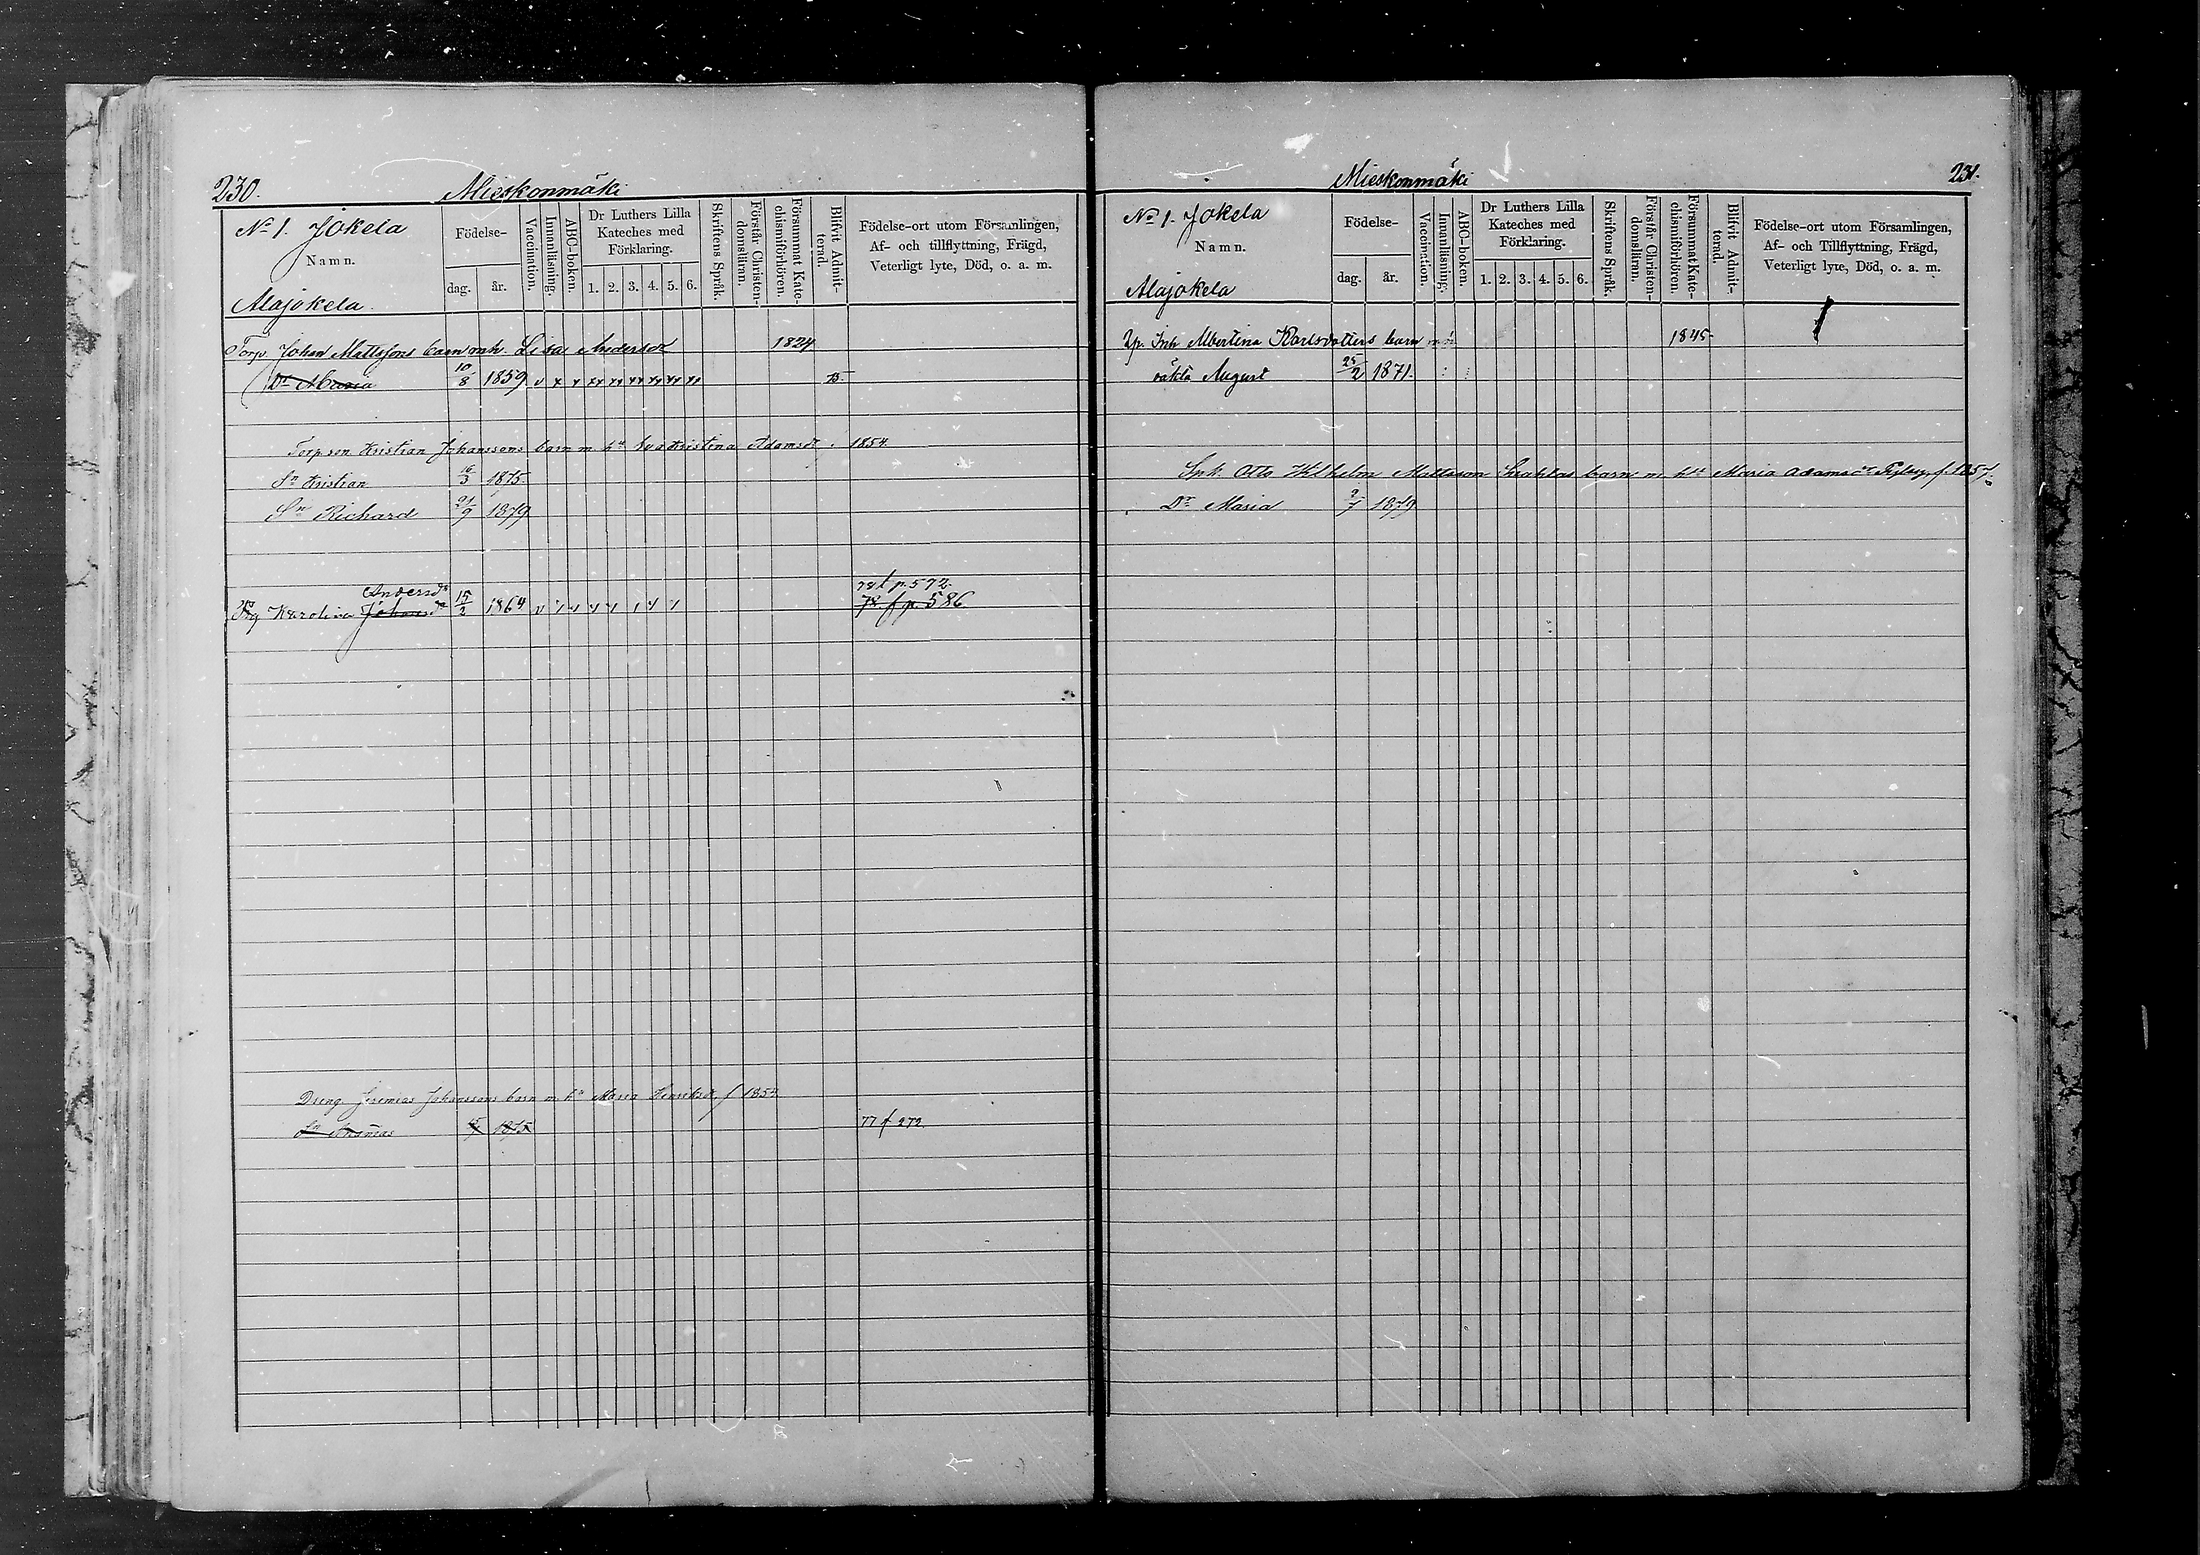 230. Mieskonmäki
No 1. Jokela
Namn.
Alajokela.
Födelse-
dag. år.
Vaccination.
Innanläsning.
ABC-boken.
Dr Luthers Lilla
Kateches med
Förklaring.
1. 2. 3. 4. 5. 6.
Skriftens Språk.
Förstår Christen-
domsläran.
Försummat Kate-
chismiförhören.
Blifvit Admit-
terad.
Födelse-ort utom Församlingen,
Af- och tillflyttning, Frägd,
Veterligt lyte, Död, o. a. m.
Torp. Johan Mattssons barn m h. Lisa Andersdr 1824
Dr Maria 10/8 1859 75.
Torpson Kristian Johanssons barn m. hu Eva Kristina Adamsdr. 1854
Sn Kristian 16/3 1875
Sn Richard 21/9 1879
Andersdr 78 t p. 572.
Karolina Johansdr 15/2 1864 78 f p. 586
Dreng Jeremias Johanssons barn m. hu Maria Henriksdr f 1853
Sn Ananias 1875 77 f 272.
Mieskonmäki 231.
No 1. Jokela
Namn.
Alajokela
Födelse-
dag. år.
Vaccination.
Innanläsning.
ABC-boken.
Dr Luthers Lilla
Kateches med
Förklaring.
1. 2. 3. 4. 5. 6.
Skriftens Språk.
Förstår Christen-
domslänn.
Försummat Kate-
chismiförhören.
Blifvit Admit-
terad.
Födelse-ort utom Församlingen,
Af- och Tillflyttning, Frägd,
Veterligt lyte, Död, o. a. m.
Inh Albertina Karlsdotters barn 1845
oäkta August 25/2 1871.
Otto Vilhelm Mattsson barn m. hu Maria Adamsdr
Dr Maria 2/7 1879